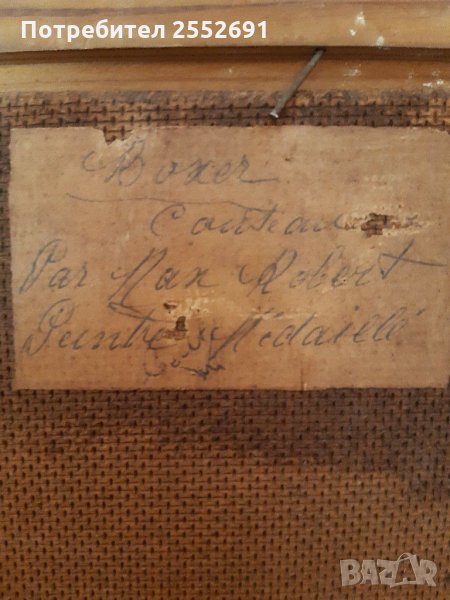 Потребител 2552691
Boxer
Par Max Robert
Peintre Médaillé
BAZAR